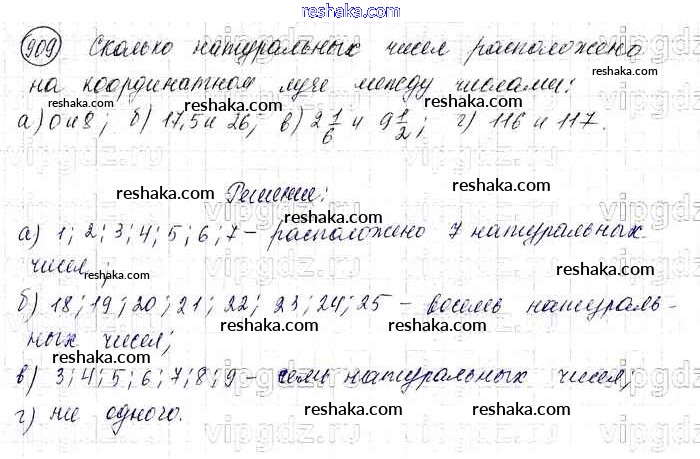 reshaka.com
909 Сколько натуральных чисел расположено
на координатном луче между числами:
reshaka.com reshaka.com reshaka.com
а) 0 и 8; б) 17,5 и 26; в) 2 1/6 и 9 1/2; г) 116 и 117.
reshaka.com reshaka.com
vipgdz.ru vipgdz.ru vipgdz.ru
Решение:
reshaka.com reshaka.com reshaka.com
а) 1; 2; 3; 4; 5; 6; 7 – расположено 7 натуральных
чисел;
reshaka.com reshaka.com reshaka.com
б) 18; 19; 20; 21; 22; 23; 24; 25 – восемь натураль-
ных чисел;
reshaka.com reshaka.com reshaka.com
в) 3; 4; 5; 6; 7; 8; 9 – семь натуральных чисел;
г) ни одного.
reshaka.com reshaka.com reshaka.com
vipgdz.ru vipgdz.ru vipgdz.ru
reshaka.com